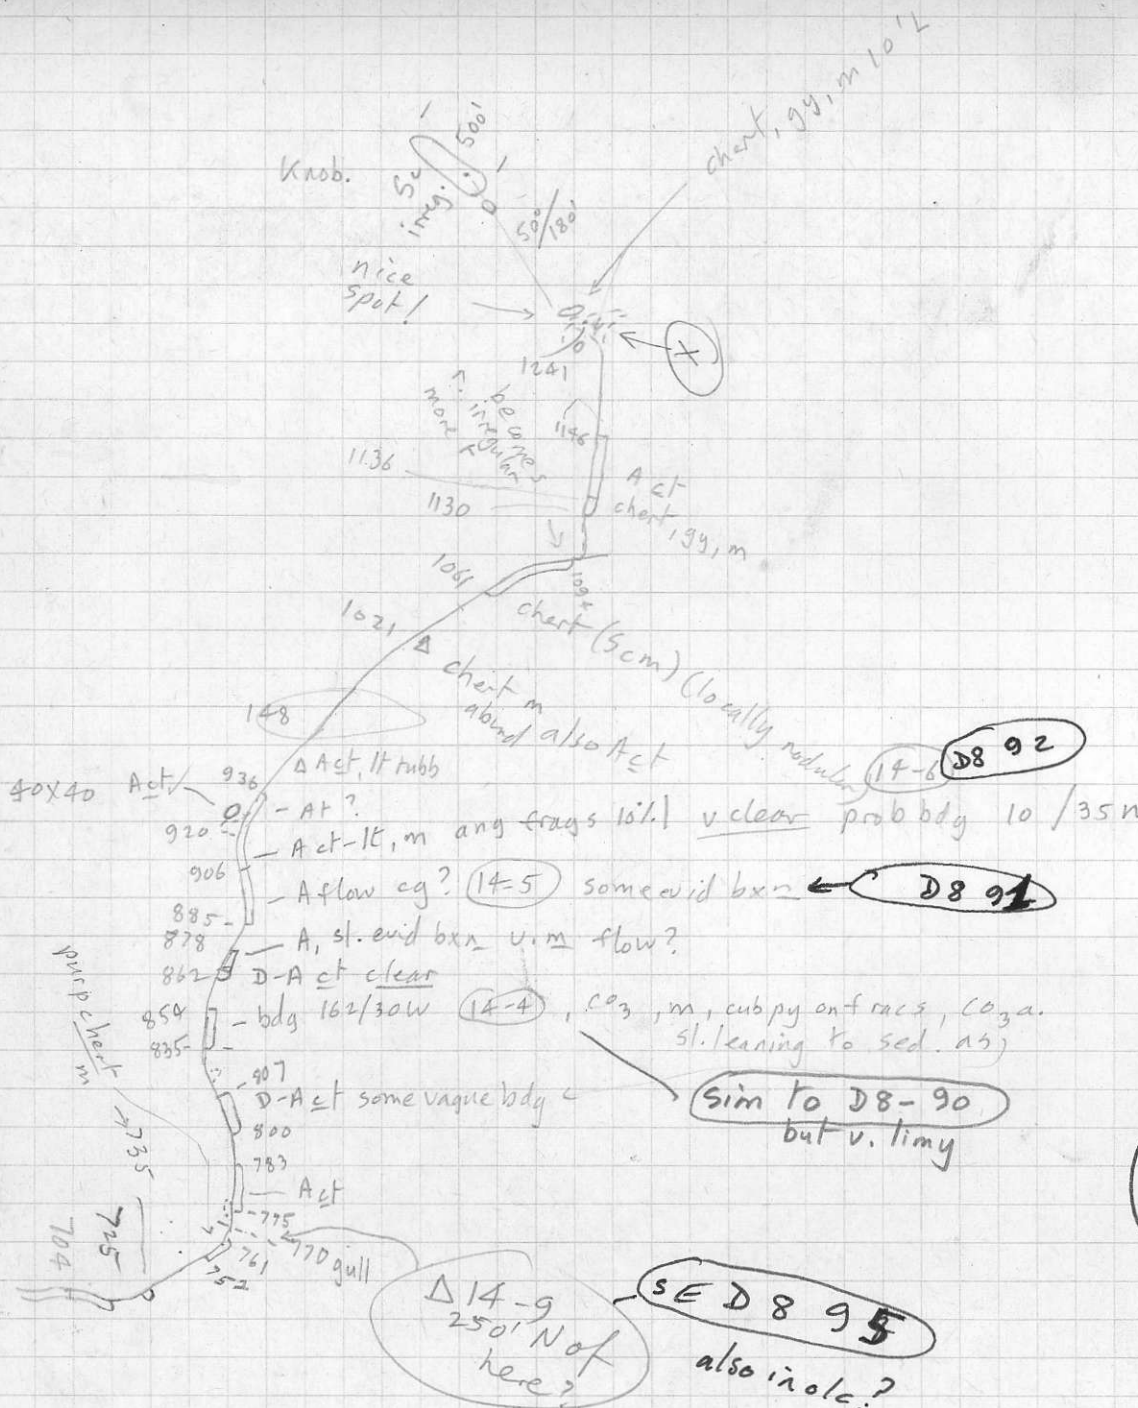 chert, gy, m 10'L
Knob.
500'
5c
irreg.
50'/180'
nice
spot!
X
1241
becomes
irregular
more
1146
1136
1130
A ct
chert, gy, m
1061
1094
chert (5cm) (locally nodular)
1021
Δ
chert m
abund also Act
148
14-6
D8 92
936
Δ Act, lt rubb
40x40
Act
- At?
920
Act-lt, m ang frags 10% v clear prob bdg 10/35
906
A flow cg? 14-5 some evid bxn
D8 91
885
878
A, sl. evid bxn v. m flow?
862
D-A ct clear
854
- bdg 162/30W 14-4, CO3, m, cub py on fracs, CO3 a.
sl. leaning to sed. as)
835
purp chert
m
807
D-A ct some vague bdg
Sim to D8-90
but v. limy
800
783
Act
735
775
770 gull
761
752
725
704
Δ14-9
250' N of
here?
SED 8 95
also in olc.?